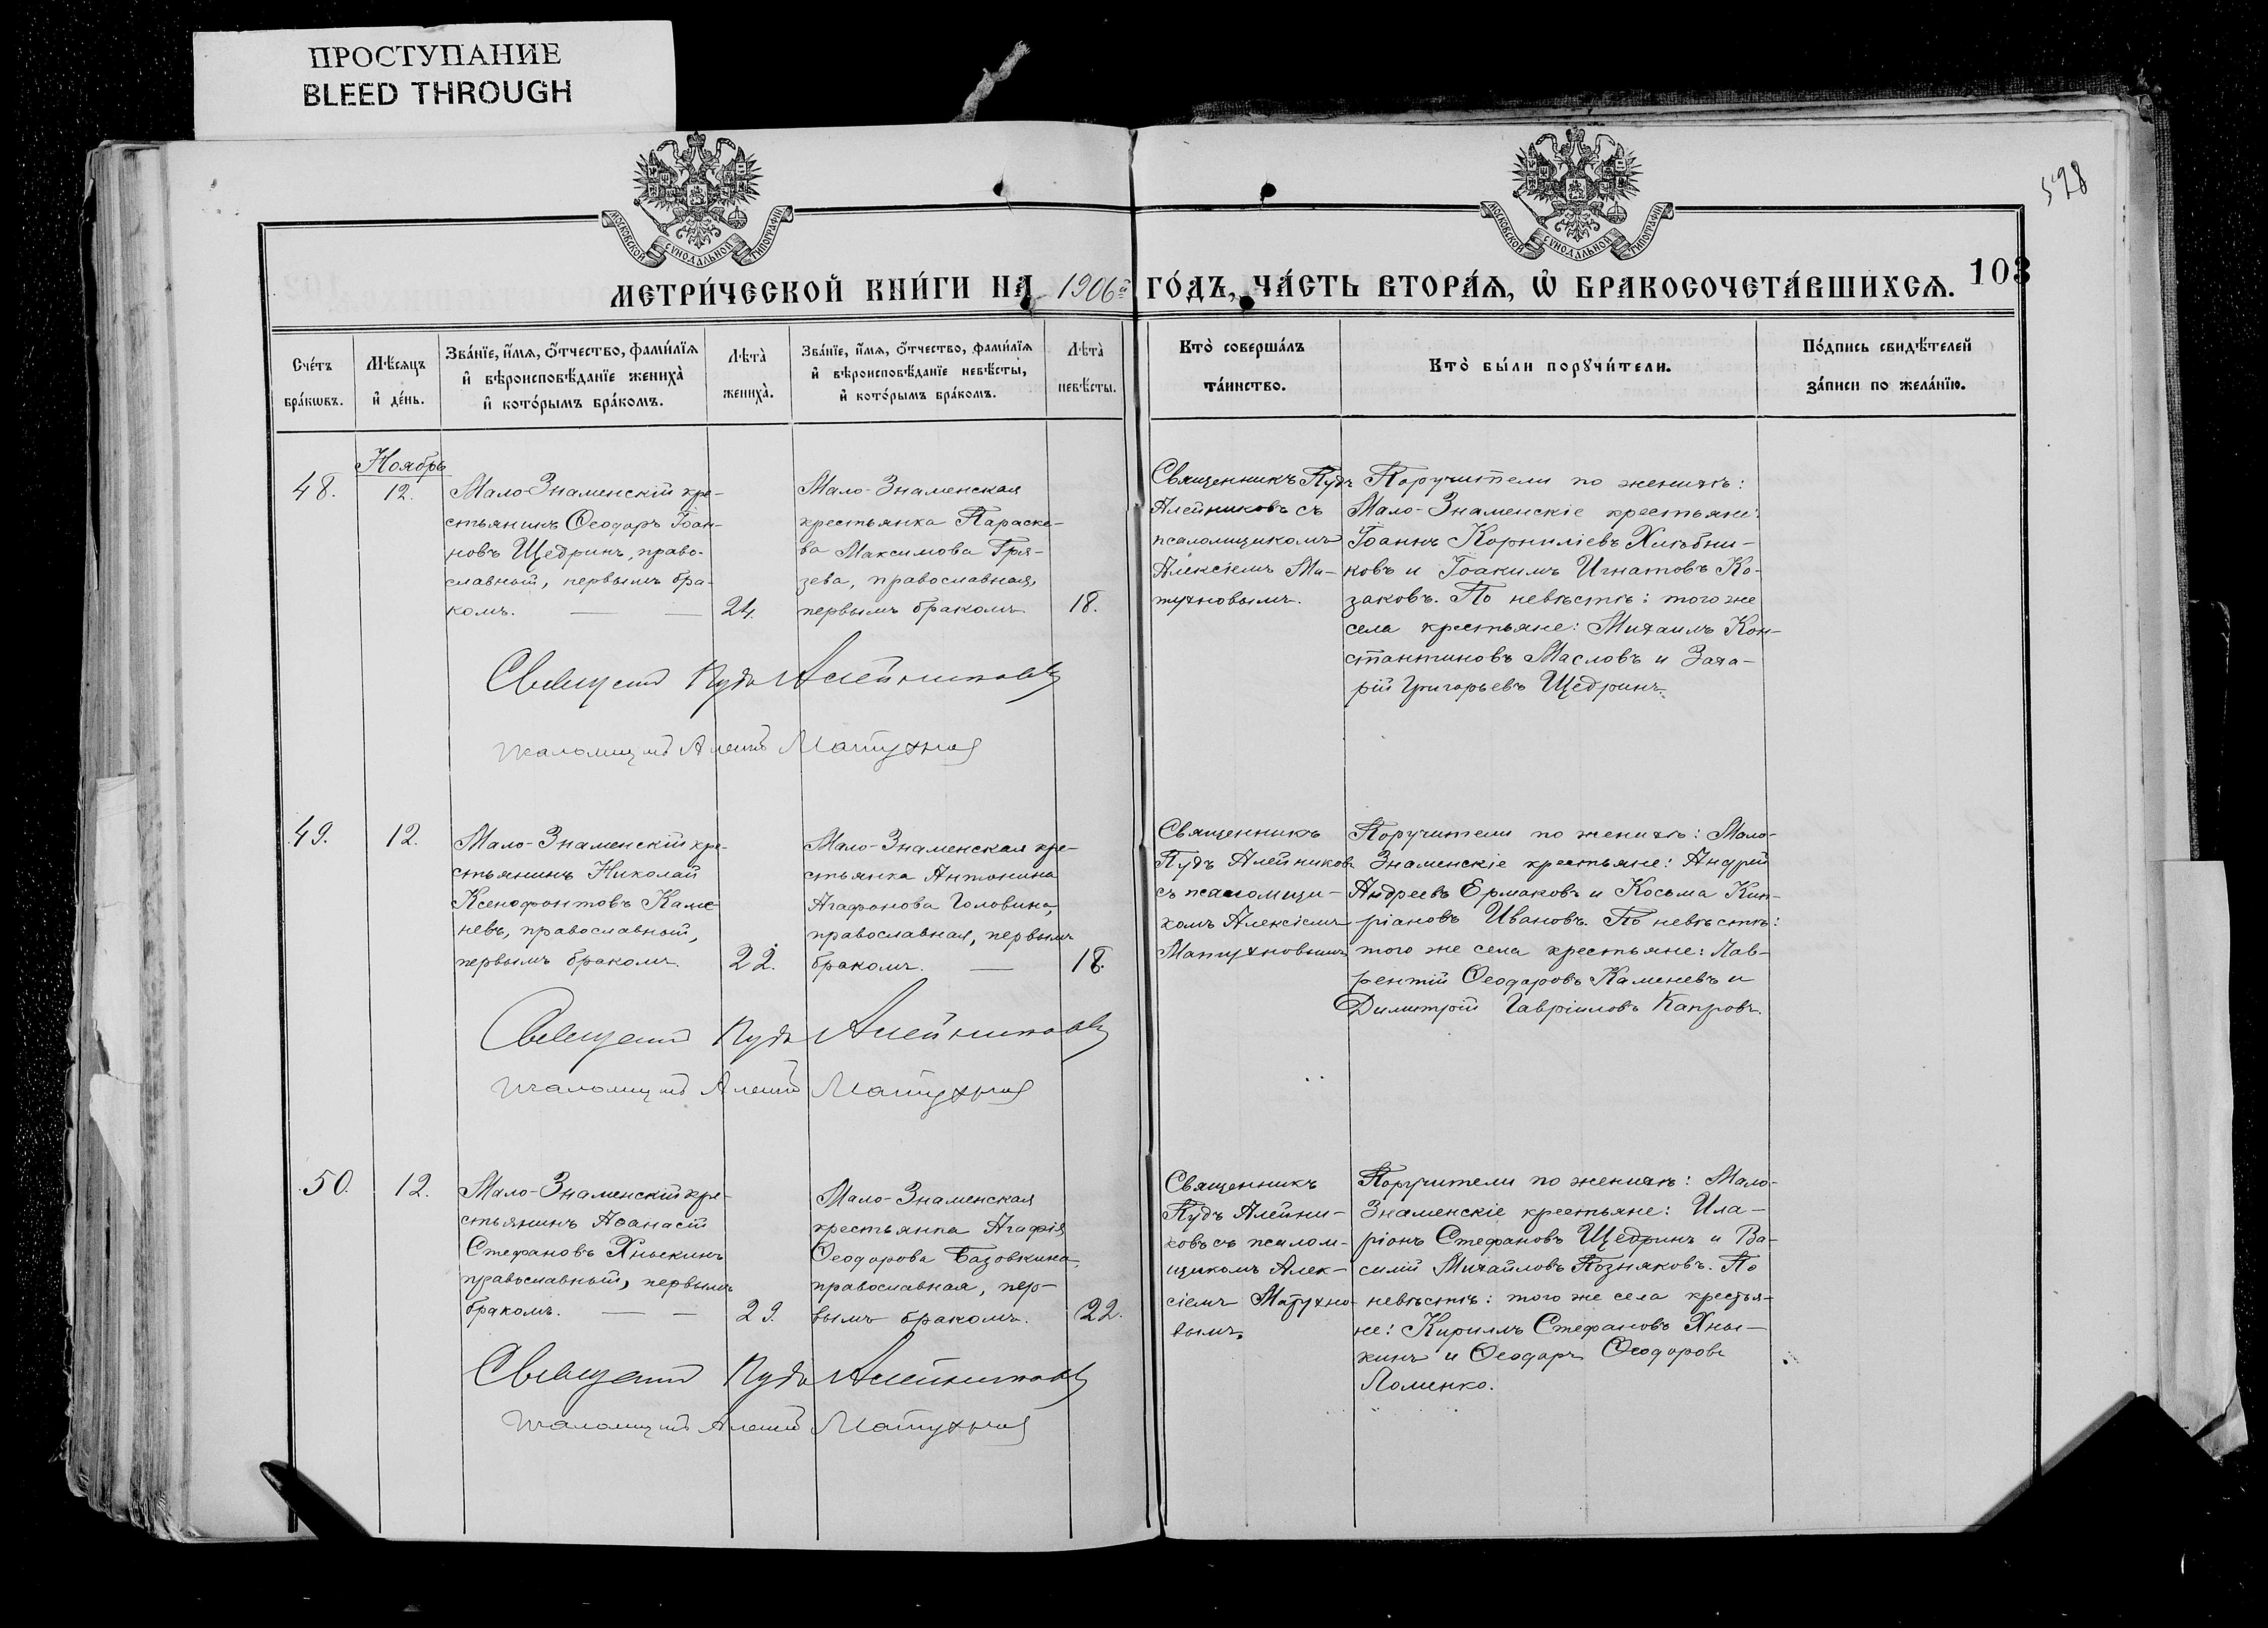 ПРОСТУПАНИЕ
BLEED THROUGH
МОСКОВСКОЙ СѴНОДАЛЬНОЙ ТИПОГРАФІИ
МОСКОВСКОЙ СѴНОДАЛЬНОЙ ТИПОГРАФІИ
528
МЕТРИ́ЧЕСКОЙ КНИ́ГИ НА 1906й ГО́ДЪ, ЧА́СТЬ ВТОРА́Ѧ, Ѡ БРАКОСОЧЕТА́ВШИХСѦ. 103
Сче́тъ
бра́кѡвъ.
Мѣ́сѧцъ
и де́нь.
Зва́нїе, и́мѧ, ѻ́тчество, фами́лїѧ
и вѣроисповѣ́данїе жениха̀
и кото́рымъ бра́комъ.
Лѣта̀
жениха̀.
Зва́нїе, и́мѧ, ѻ́тчество, фами́лїѧ
и вѣроисповѣ́данїе невѣ́сты,
и кото́рымъ бра́комъ.
Лѣта̀
невѣ́сты.
Кто̀ соверша́лъ
та́инство.
Кто̀ бы́ли порꙋчи́тели.
По́дпись свидѣ́телей
за́писи по жела́нїю.
48.
Ноябрь
12.
Мало-Знаменскій кре-
стьянинъ Ѳеодоръ Іоан-
новъ Щедринъ, право-
славный, первымъ бра-
комъ.
24.
Мало-Знаменская
крестьянка Параске-
ва Максимова Гря-
зева, православная,
первымъ бракомъ
18.
Священникъ Пудъ
Алейниковъ съ
псаломщикомъ
Алексіемъ Ма-
тухновымъ.
Поручители по женихѣ:
Мало-Знаменскіе крестьяне:
Іоаннъ Корниліевъ Хлѣбни-
ковъ и Іоакимъ Игнатовъ Ко-
заковъ. По невѣстѣ: того же
села крестьяне: Михаилъ Кон-
стантиновъ Масловъ и Заха-
рій Григорьевъ Щедринъ.
Священ Пудъ Алейниковъ
псаломщикъ Алексѣй Матухнов
49.
12.
Мало-Знаменскій кре-
стьянинъ Николай
Ксенофонтовъ Каме-
невъ, православный,
первымъ бракомъ.
22.
Мало-Знаменская кре-
стьянка Антонина
Агафонова Головина,
православная, первымъ
бракомъ.
18.
Священникъ
Пудъ Алейниковъ
съ псаломщи-
комъ Алексіемъ
Матухновымъ
Поручители по женихѣ: Мало-
Знаменскіе крестьяне: Андрей
Андреевъ Ермаковъ и Косьма Кип-
ріановъ Ивановъ. По невѣстѣ:
того же села крестьяне: Лав-
рентій Ѳеодоровъ Каменевъ и
Димитрій Гавріиловъ Капровъ.
Священ Пудъ Алейниковъ
псаломщикъ Алексѣй Матухнов
50.
12.
Мало-Знаменскій кре-
стьянинъ Аѳанасій
Стефановъ Хныкинъ
православный, первымъ
бракомъ.
29.
Мало-Знаменская
крестьянка Агафія
Ѳеодорова Базовкина,
православная, пер-
вымъ бракомъ.
22.
Священникъ
Пудъ Алейни-
ковъ съ псалом-
щикомъ Алек-
сіемъ Матухно-
вымъ.
Поручители по женихѣ: Мало-
Знаменскіе крестьяне: Ила-
ріонъ Стефановъ Щедринъ и Ва-
силій Михайловъ Позняковъ. По
невѣстѣ: того же села крестья-
не: Кириллъ Стефановъ Хны-
кинъ и Ѳеодоръ Ѳеодоровъ
Ломенко.
Священ Пудъ Алейниковъ
псаломщикъ Алексѣй Матухнов